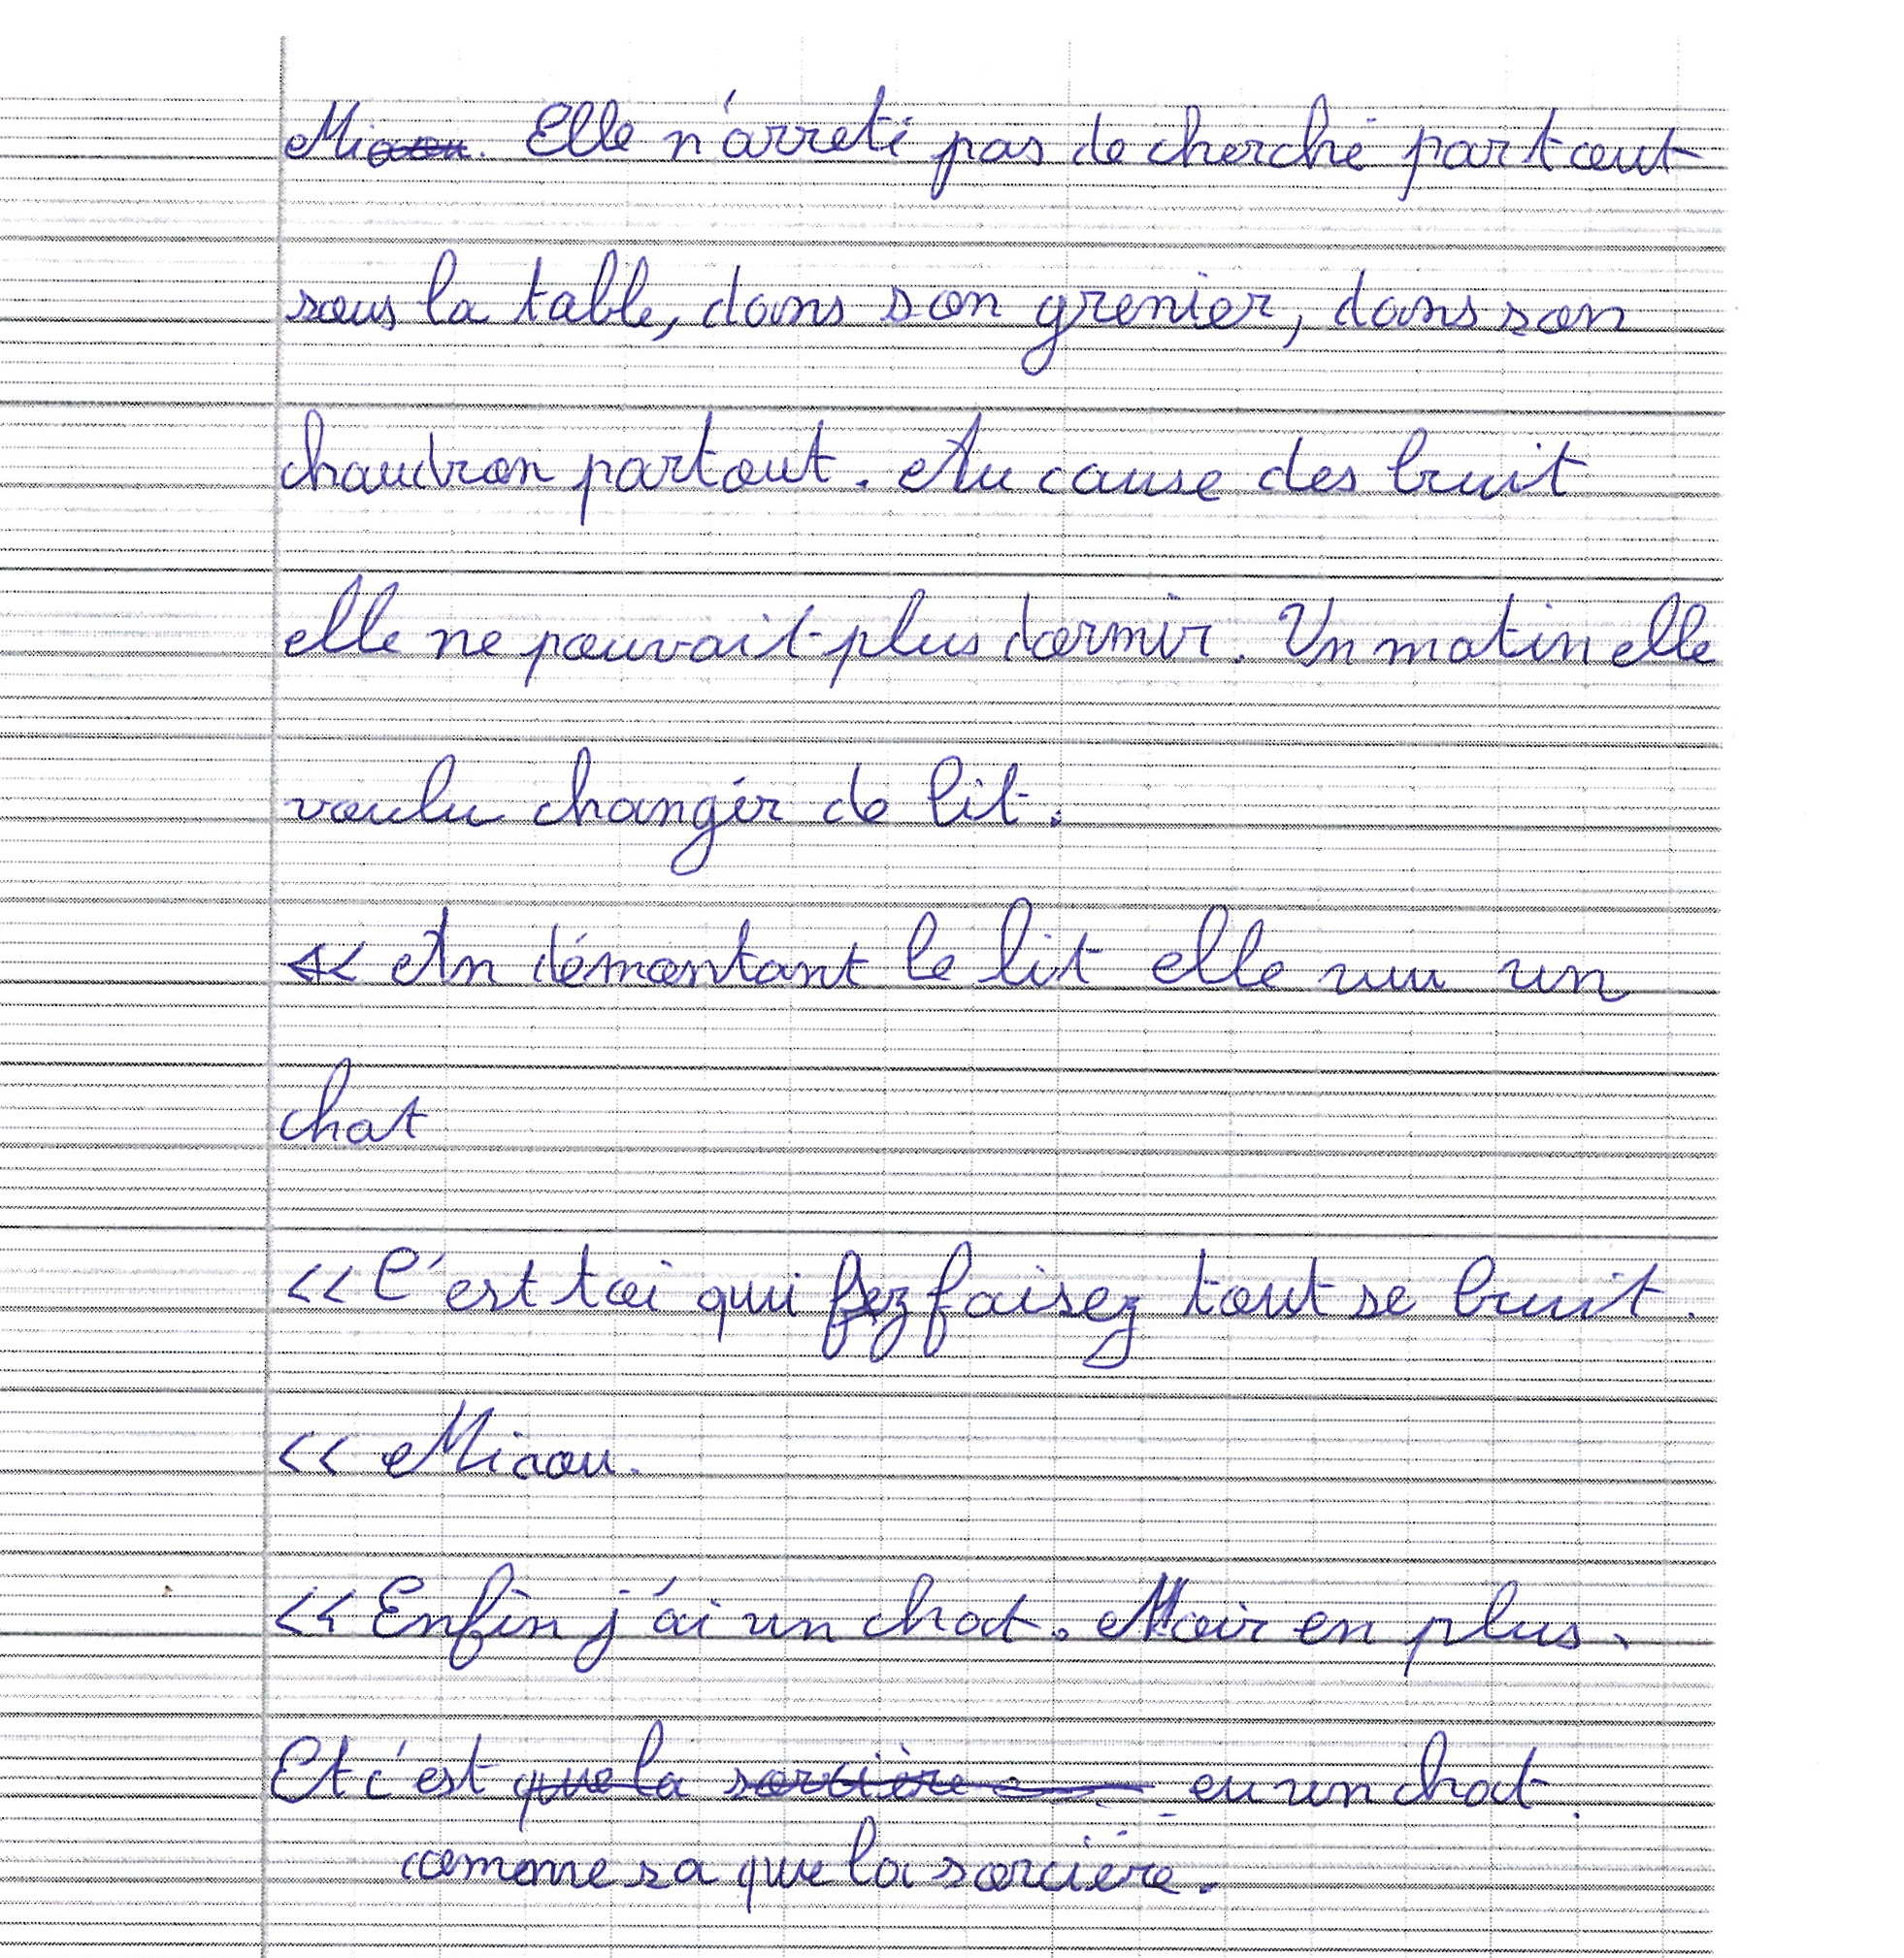 Miaou. Elle n'arreté pas de cherché partout
sous la table, dans son grenier, dans son
chaudron partout. Au cause des bruit
elle ne pouvait plus dormir. Un matin elle
voulu changér de lit.
<< An démontant le lit elle vuu un
chat
<< C'est toi qui fez faisez tout se bruit.
<< Miaou.
<< Enfin j'ai un chat. Noir en plus.
Et c'est que la sorcière eu un chat.
comme sa que la sorciere.